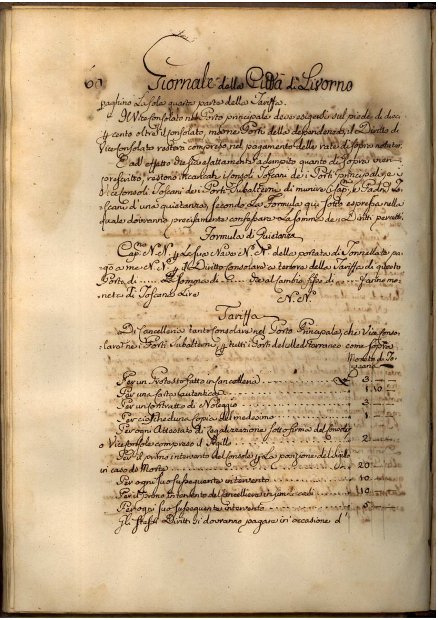 60 Giornale della Città di Livorno
paghino La sola quarta parte della Tariffa.
Il ViceConsolato nel Porto principale deve esigersi sul piede di dieci
p cento oltre il Consolato, mà ne Porti della dependenza, il Diritto di
ViceConsolato resterà compreso nel pagamento delle rate di sopra notate.
Ed ad effetto che sia esattamente adempito quanto di sopra vien
prescritto, restono incaricati i Consoli Toscani de i Porti principali, e i
ViceConsoli Toscani de i Porti Subalterni di munire i Cap.ⁿⁱ, e Padroni
Toscani d'una quietanza, secondo La Formula qui sotto espressa nella
quale dovranno precisamente confessare La somma de i Diritti percetti
Formula di Quietanza
Cap.ⁿᵒ N. N. p La sua Nave N. N. della portata di Tonnellate pa-
gò a me N. N. il Diritto Consolare a tenore della Tariffa di questo
Porto di ..... La somma di ..... che al Cambio fisso di ..... fanno mo-
neta di Toscana Lire N. N.
Tariffa
Di Cancelleria tanto Consolare nel Porto Principale, che ViceConso-
lare ne i Porti Subalterni p tutti i Porti del Mediterraneo come sopra
Moneta di To-
scana
Per un Protesto fatto in Cancelleria £ 3
Per una Carta autenticata 1. 10
Per un Contratto di Noleggio 3
Per ciascheduna Copia del medesimo 1
Per ogni Attestato di Legalizazione sotto firma del Console
o ViceConsole compreso il Sigillo 2
Per il primo intervento del Console p La posizione de i Sigilli
in caso di Morte 20
Per ogni suo susseguente intervento 10
Per il primo Intervento del Cancelliere in simili casi 10
Per ogni suo susseguente intervento 5
Gli stessi Diritti si dovranno pagare in occasione d'